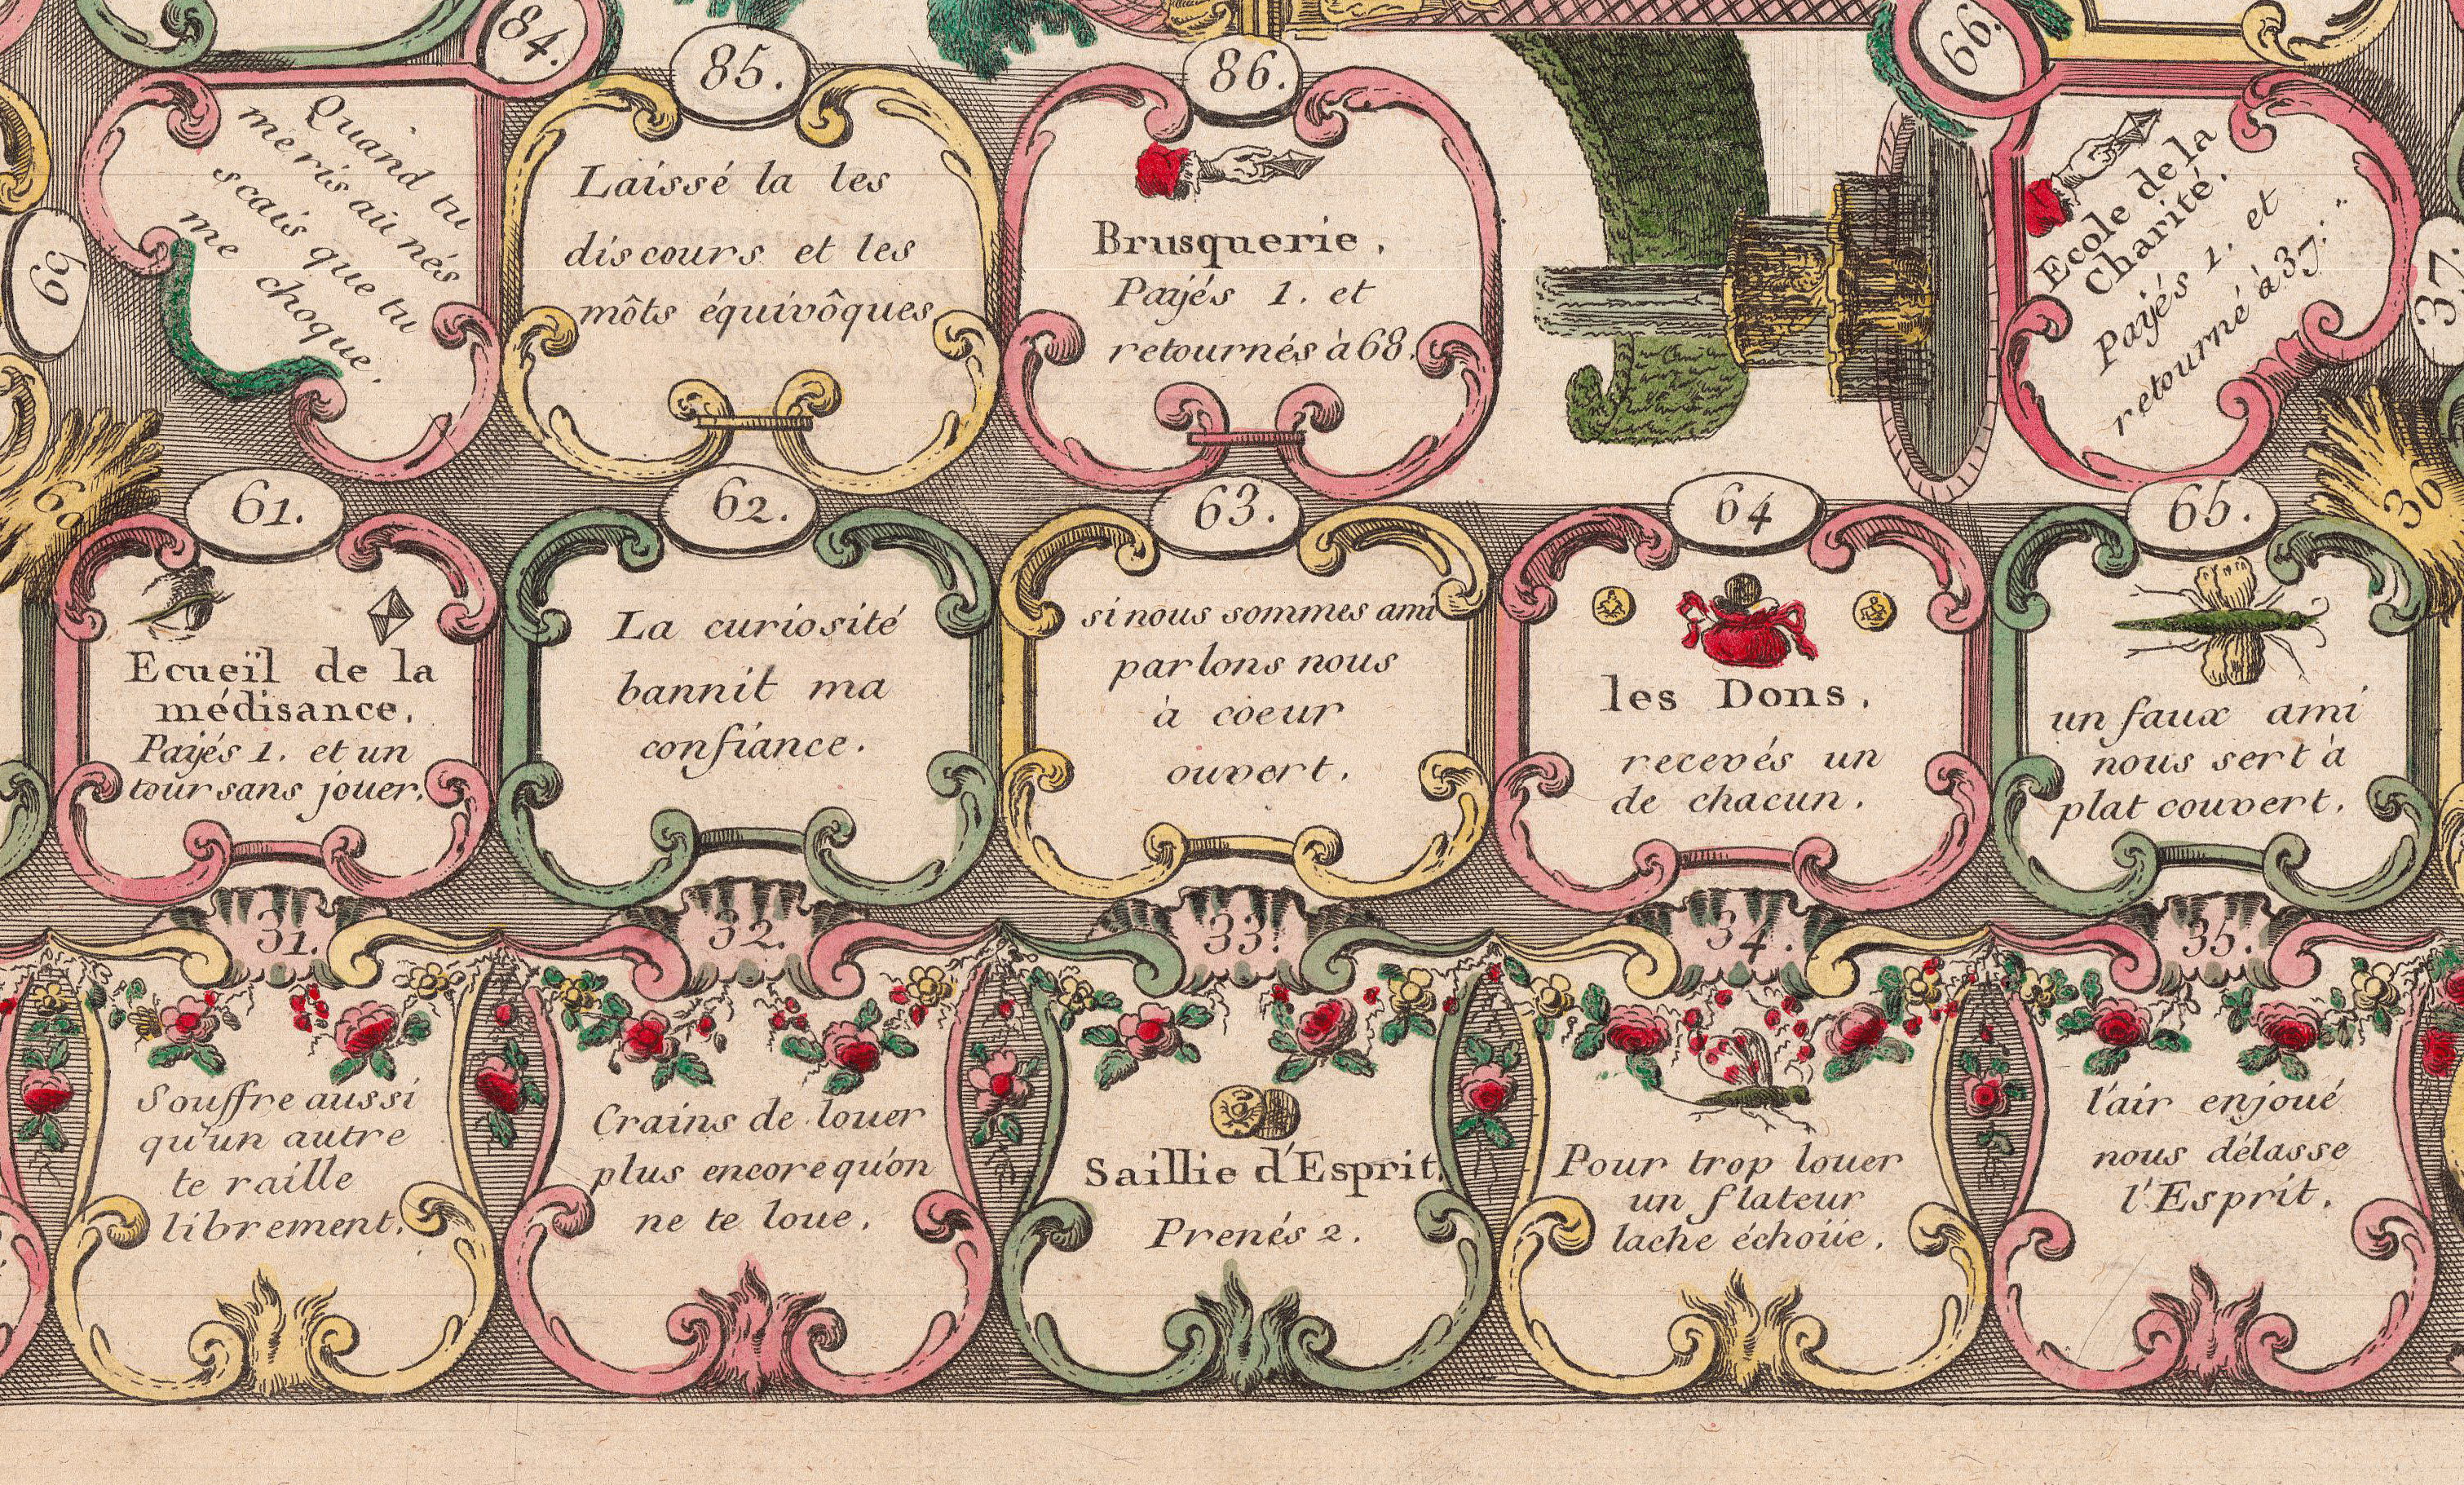 84.
Quand tu
me ris au nés
scais que tu
me choque.
85.
Laissé la les
discours et les
môts équivôques
86.
Brusquerie,
Païés 1. et
retournés à 68.
66.
Ecole de la
Charité.
Païés 1. et
retourné à 37.
69
37.
60
61.
Ecueïl de la
médisance,
Païés 1. et un
tour sans jouer.
62.
La curiosité
bannit ma
confiance.
63.
si nous sommes ami
parlons nous
à coeur
ouvert.
64
les Dons,
recevés un
de chacun.
65.
un faux ami
nous sert à
plat couvert.
36
31.
Souffre aussi
qu'un autre
te raille
librement.
32.
Crains de louer
plus encore qu'on
ne te loue,
33.
Saillie d'Esprit.
Prenés 2.
34.
Pour trop louer
un flateur
lache échoüe,
35.
l'air enjoué
nous délasse
l'Esprit.